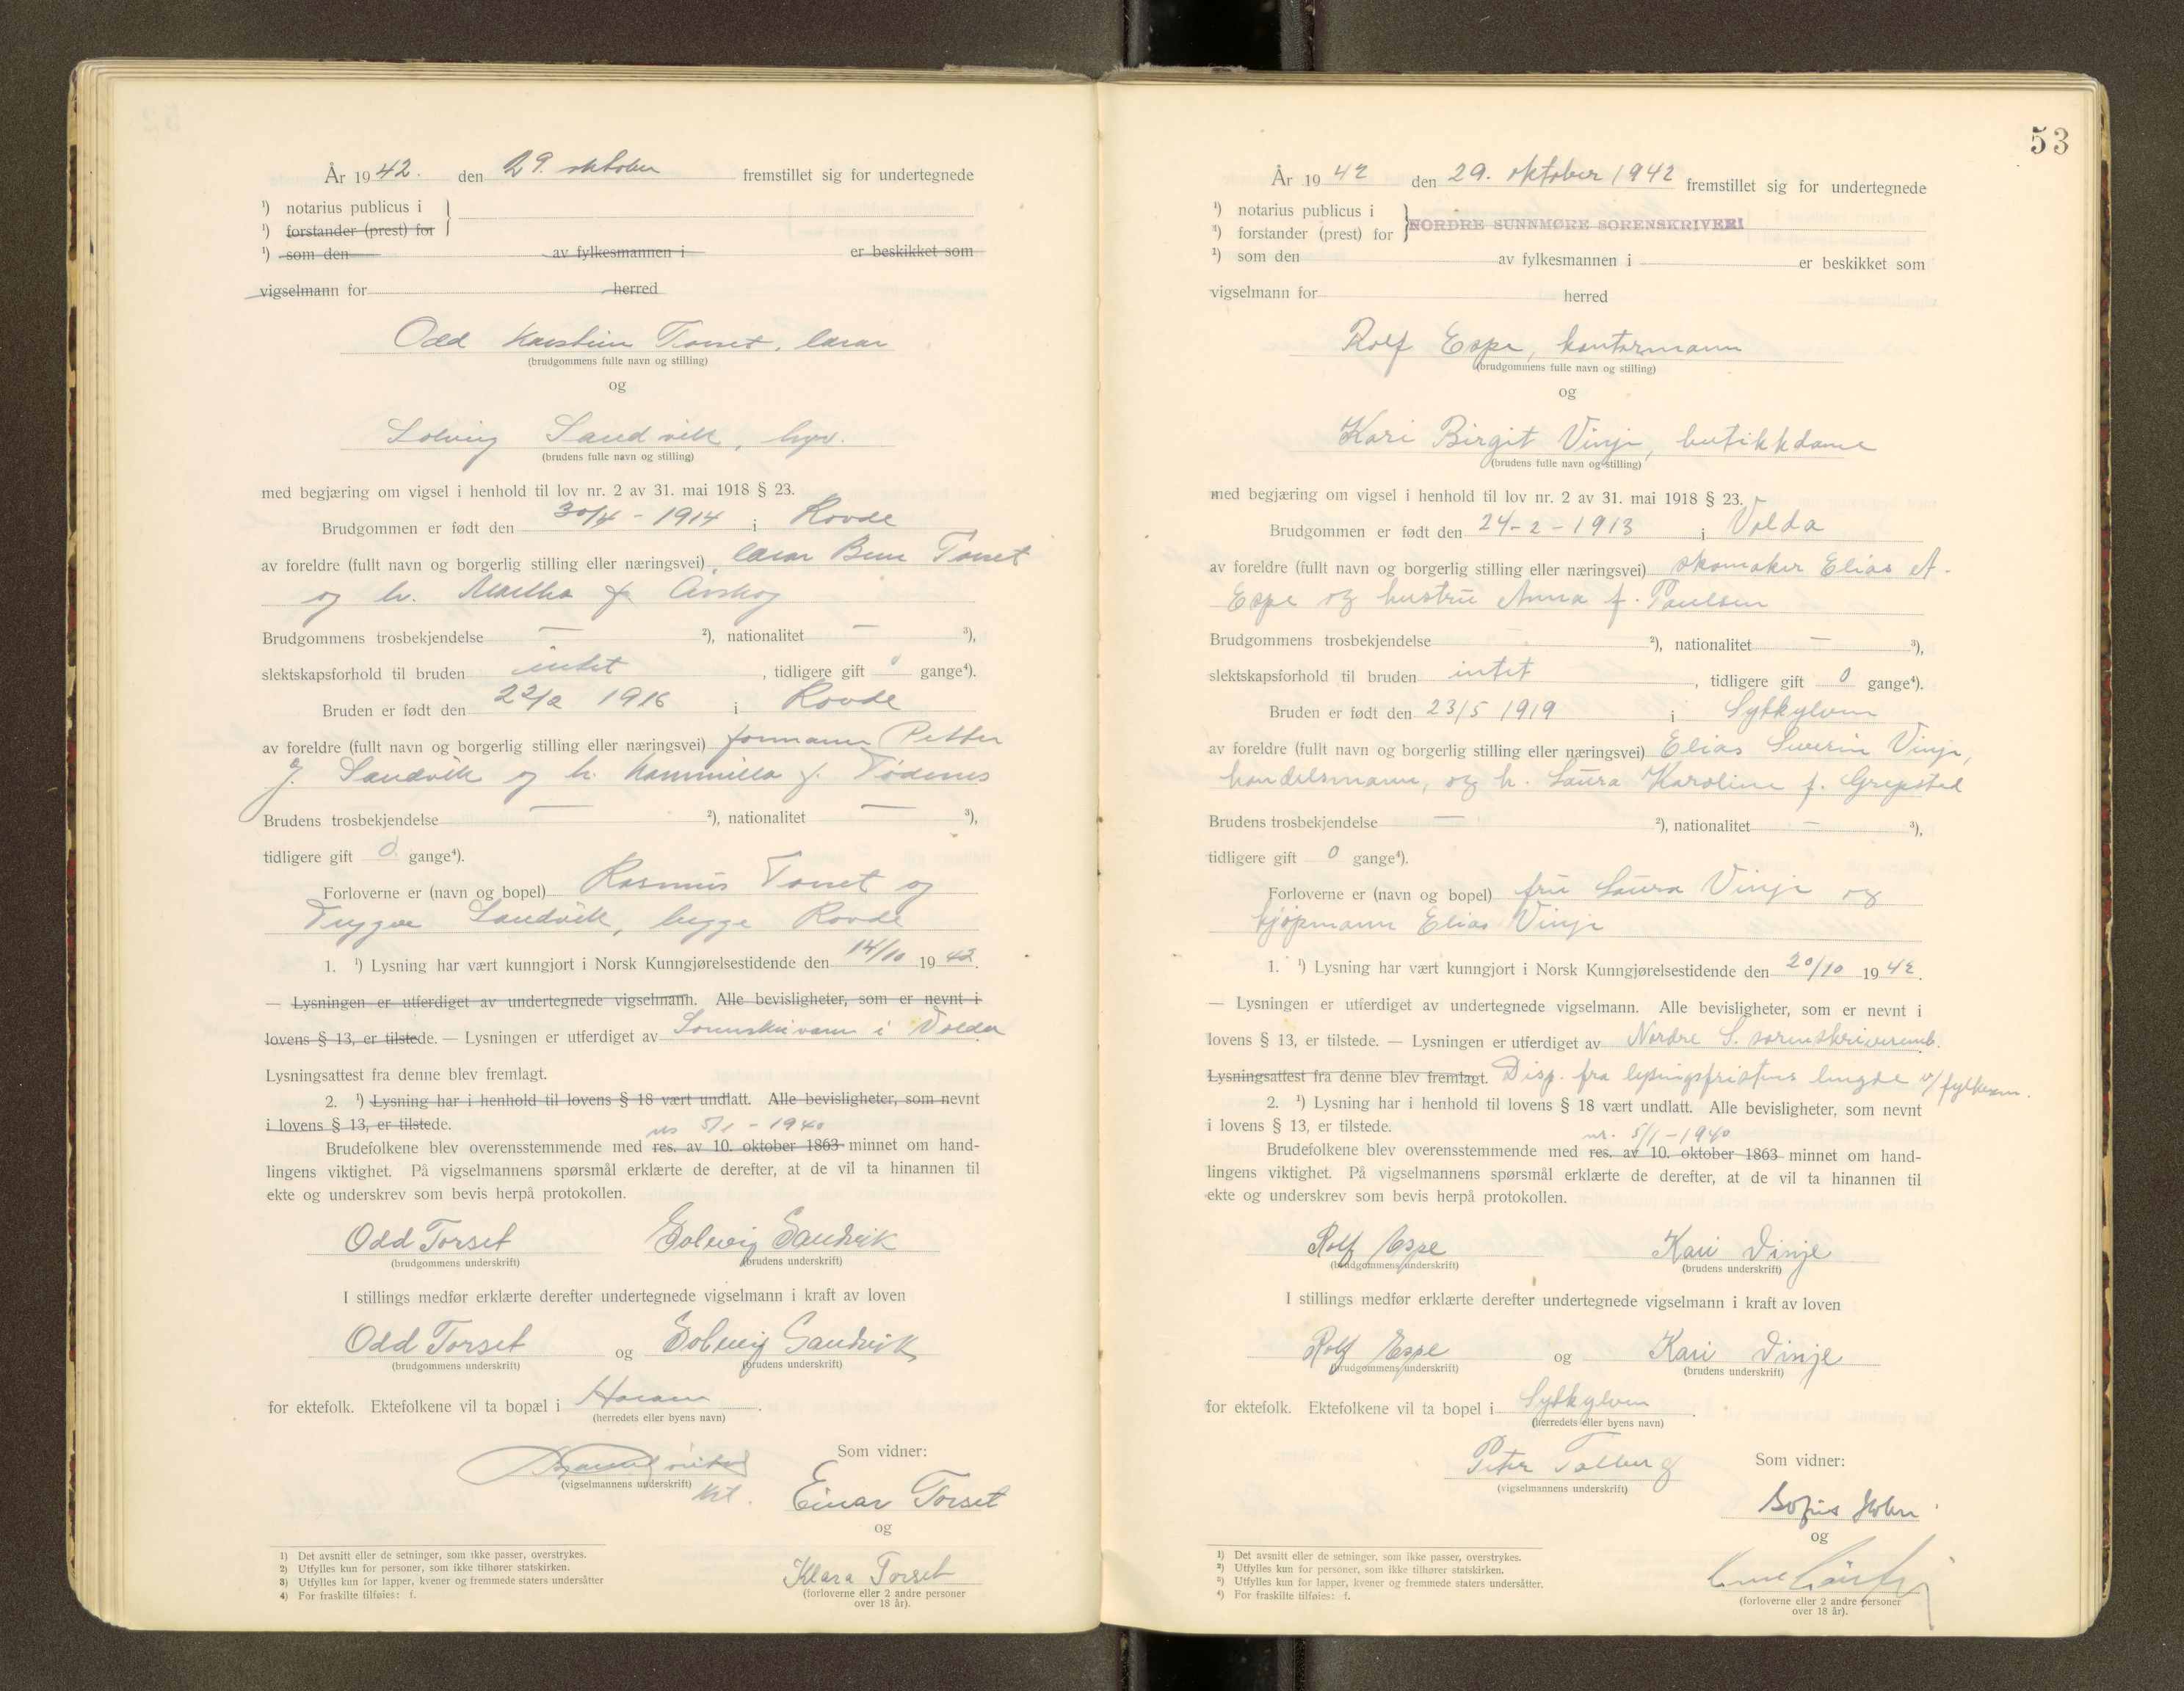 År 1942. den 29. oktober fremstillet sig for undertegnede
¹) notarius publicus i
¹) forstander (prest) for
¹) som den av fylkesmannen i er beskikket som
vigselmann for herred
Odd Karstein Torset, lærar
(brudgommens fulle navn og stilling)
og
Solveig Sandvik, hyv.
(brudens fulle navn og stilling)
med begjæring om vigsel i henhold til lov nr. 2 av 31. mai 1918 § 23.
Brudgommen er født den 30/4 - 1914 i Rovde
av foreldre (fullt navn og borgerlig stilling eller næringsvei) lærar Torset
og h. Martha f.
Brudgommens trosbekjendelse — ²), nationalitet — ³),
slektskapsforhold til bruden intet, tidligere gift 0 gange⁴).
Bruden er født den 22/2 1916 i Rovde
av foreldre (fullt navn og borgerlig stilling eller næringsvei) formann Petter
J. Sandvik og h. Kammilla f. Tødenes
Brudens trosbekjendelse — ²), nationalitet — ³),
tidligere gift 0. gange⁴).
Forloverne er (navn og bopel) Rasmus Torset og
Trygve Sandvik, begge Rovde
1. ¹) Lysning har vært kunngjort i Norsk Kunngjørelsestidende den 14/10 1942.
— Lysningen er utferdiget av undertegnede vigselmann. Alle bevisligheter, som er nevnt i
lovens § 13, er tilstede. — Lysningen er utferdiget av Sorenskrivaren i Volda
Lysningsattest fra denne blev fremlagt.
2. ¹) Lysning har i henhold til lovens § 18 vært undlatt. Alle bevisligheter, som nevnt
i lovens § 13, er tilstede.
res 5/1 - 1940
Brudefolkene blev overensstemmende med res. av 10. oktober 1863 minnet om hand-
lingens viktighet. På vigselmannens spørsmål erklærte de derefter, at de vil ta hinannen til
ekte og underskrev som bevis herpå protokollen.
Odd Torset Solveig Sandvik
(brudgommens underskrift) (brudens underskrift)
I stillings medfør erklærte derefter undertegnede vigselmann i kraft av loven
Odd Torset og Solveig Sandvik
(brudgommens underskrift) (brudens underskrift)
for ektefolk. Ektefolkene vil ta bopæl i Haram.
(herredets eller byens navn)
Som vidner:
(vigselmannens underskrift)
Einar Torset
og
Klara Torset
(forloverne eller 2 andre personer
over 18 år).
1) Det avsnitt eller de setninger, som ikke passer, overstrykes.
2) Utfylles kun for personer, som ikke tilhører statskirken.
3) Utfylles kun for lapper, kvener og fremmede staters undersåtter
4) For fraskilte tilføies: f.
53
År 1942 den 29. oktober 1942 fremstillet sig for undertegnede
¹) notarius publicus i
¹) forstander (prest) for NORDRE SUNNMØRE SORENSKRIVERI
¹) som den av fylkesmannen i er beskikket som
vigselmann for herred
Rolf Espe, kontormann
(brudgommens fulle navn og stilling)
og
Kari Birgit Vinje, butikkdame
(brudens fulle navn og stilling)
med begjæring om vigsel i henhold til lov nr. 2 av 31. mai 1918 § 23.
Brudgommen er født den 24-2-1913 i Volda
av foreldre (fullt navn og borgerlig stilling eller næringsvei) skomaker Elias A.
Espe og hustru Anna f. Paulsen
Brudgommens trosbekjendelse — ²), nationalitet — ³),
slektskapsforhold til bruden intet, tidligere gift 0 gange⁴).
Bruden er født den 23/5 1919 i Sykkylven
av foreldre (fullt navn og borgerlig stilling eller næringsvei) Elias Severin Vinje,
handelsmann, og h. Laura Karoline f. Grepstad
Brudens trosbekjendelse — ²), nationalitet — ³),
tidligere gift 0 gange⁴).
Forloverne er (navn og bopel) fru Laura Vinje og
kjøpmann Elias Vinje
1. ¹) Lysning har vært kunngjort i Norsk Kunngjørelsestidende den 20/10 1942.
— Lysningen er utferdiget av undertegnede vigselmann. Alle bevisligheter, som er nevnt i
lovens § 13, er tilstede. — Lysningen er utferdiget av Nordre S. sorenskriveremb.
Lysningsattest fra denne blev fremlagt. Disp. fra lysingsfristens lengde v/ fylkesm.
2. ¹) Lysning har i henhold til lovens § 18 vært undlatt. Alle bevisligheter, som nevnt
i lovens § 13, er tilstede.
5/1-1940
Brudefolkene blev overensstemmende med res. av 10. oktober 1863 minnet om hand-
lingens viktighet. På vigselmannens spørsmål erklærte de derefter, at de vil ta hinannen til
ekte og underskrev som bevis herpå protokollen.
Rolf Espe Kari Vinje
(brudgommens underskrift) (brudens underskrift)
I stillings medfør erklærte derefter undertegnede vigselmann i kraft av loven
Rolf Espe og Kari Vinje
(brudgommens underskrift) (brudens underskrift)
for ektefolk. Ektefolkene vil ta bopel i Sykkylven.
(herredets eller byens navn)
Peter Som vidner:
(vigselmannens underskrift)
Sofus Holm
og
(forloverne eller 2 andre personer
over 18 år).
¹) Det avsnitt eller de setninger, som ikke passer, overstrykes.
²) Utfylles kun for personer, som ikke tilhører statskirken.
³) Utfylles kun for lapper, kvener og fremmede staters undersåtter.
⁴) For fraskilte tilføies: f.